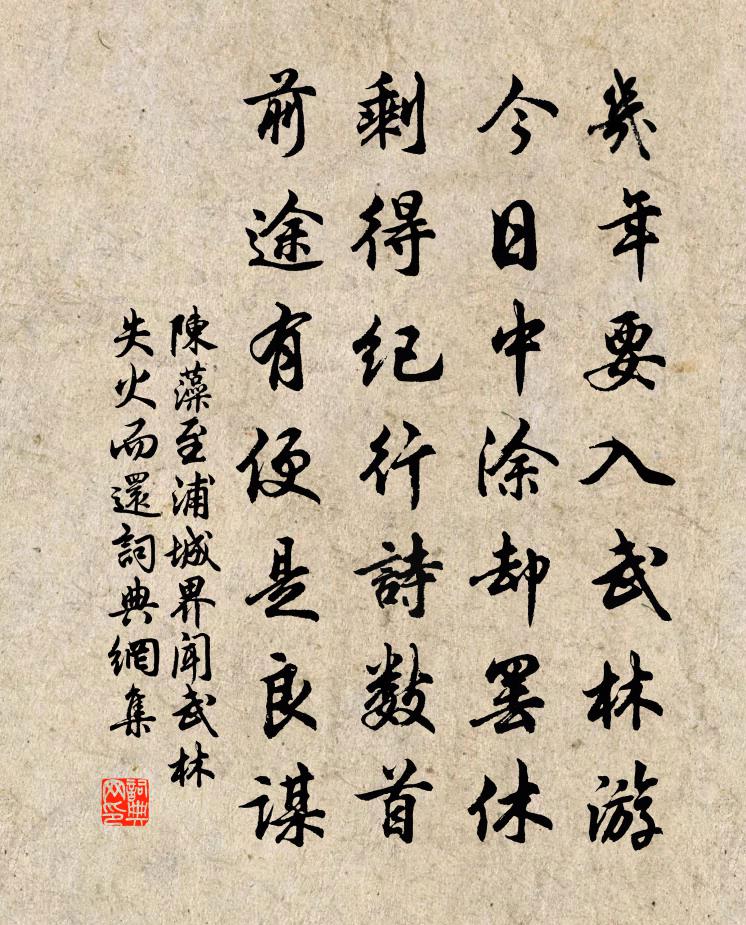 幾年要入武林游
今日中涂却罢休
剩得纪行詩数首
前途有便是良謀
陳藻至浦城界聞武林
失火而還詞典網集
詞典
网印